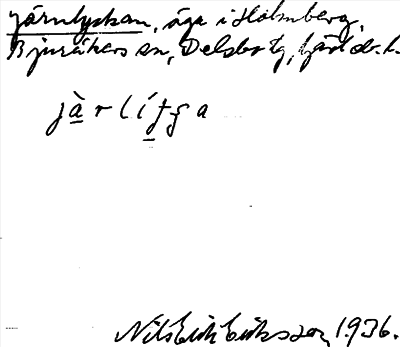 järnlyckan, äga i Holmberg,
Bjuråkers sn, Delsbo tg, Gävl. l.
jà̠rlífga
Nils Erik Eriksson, 1936.